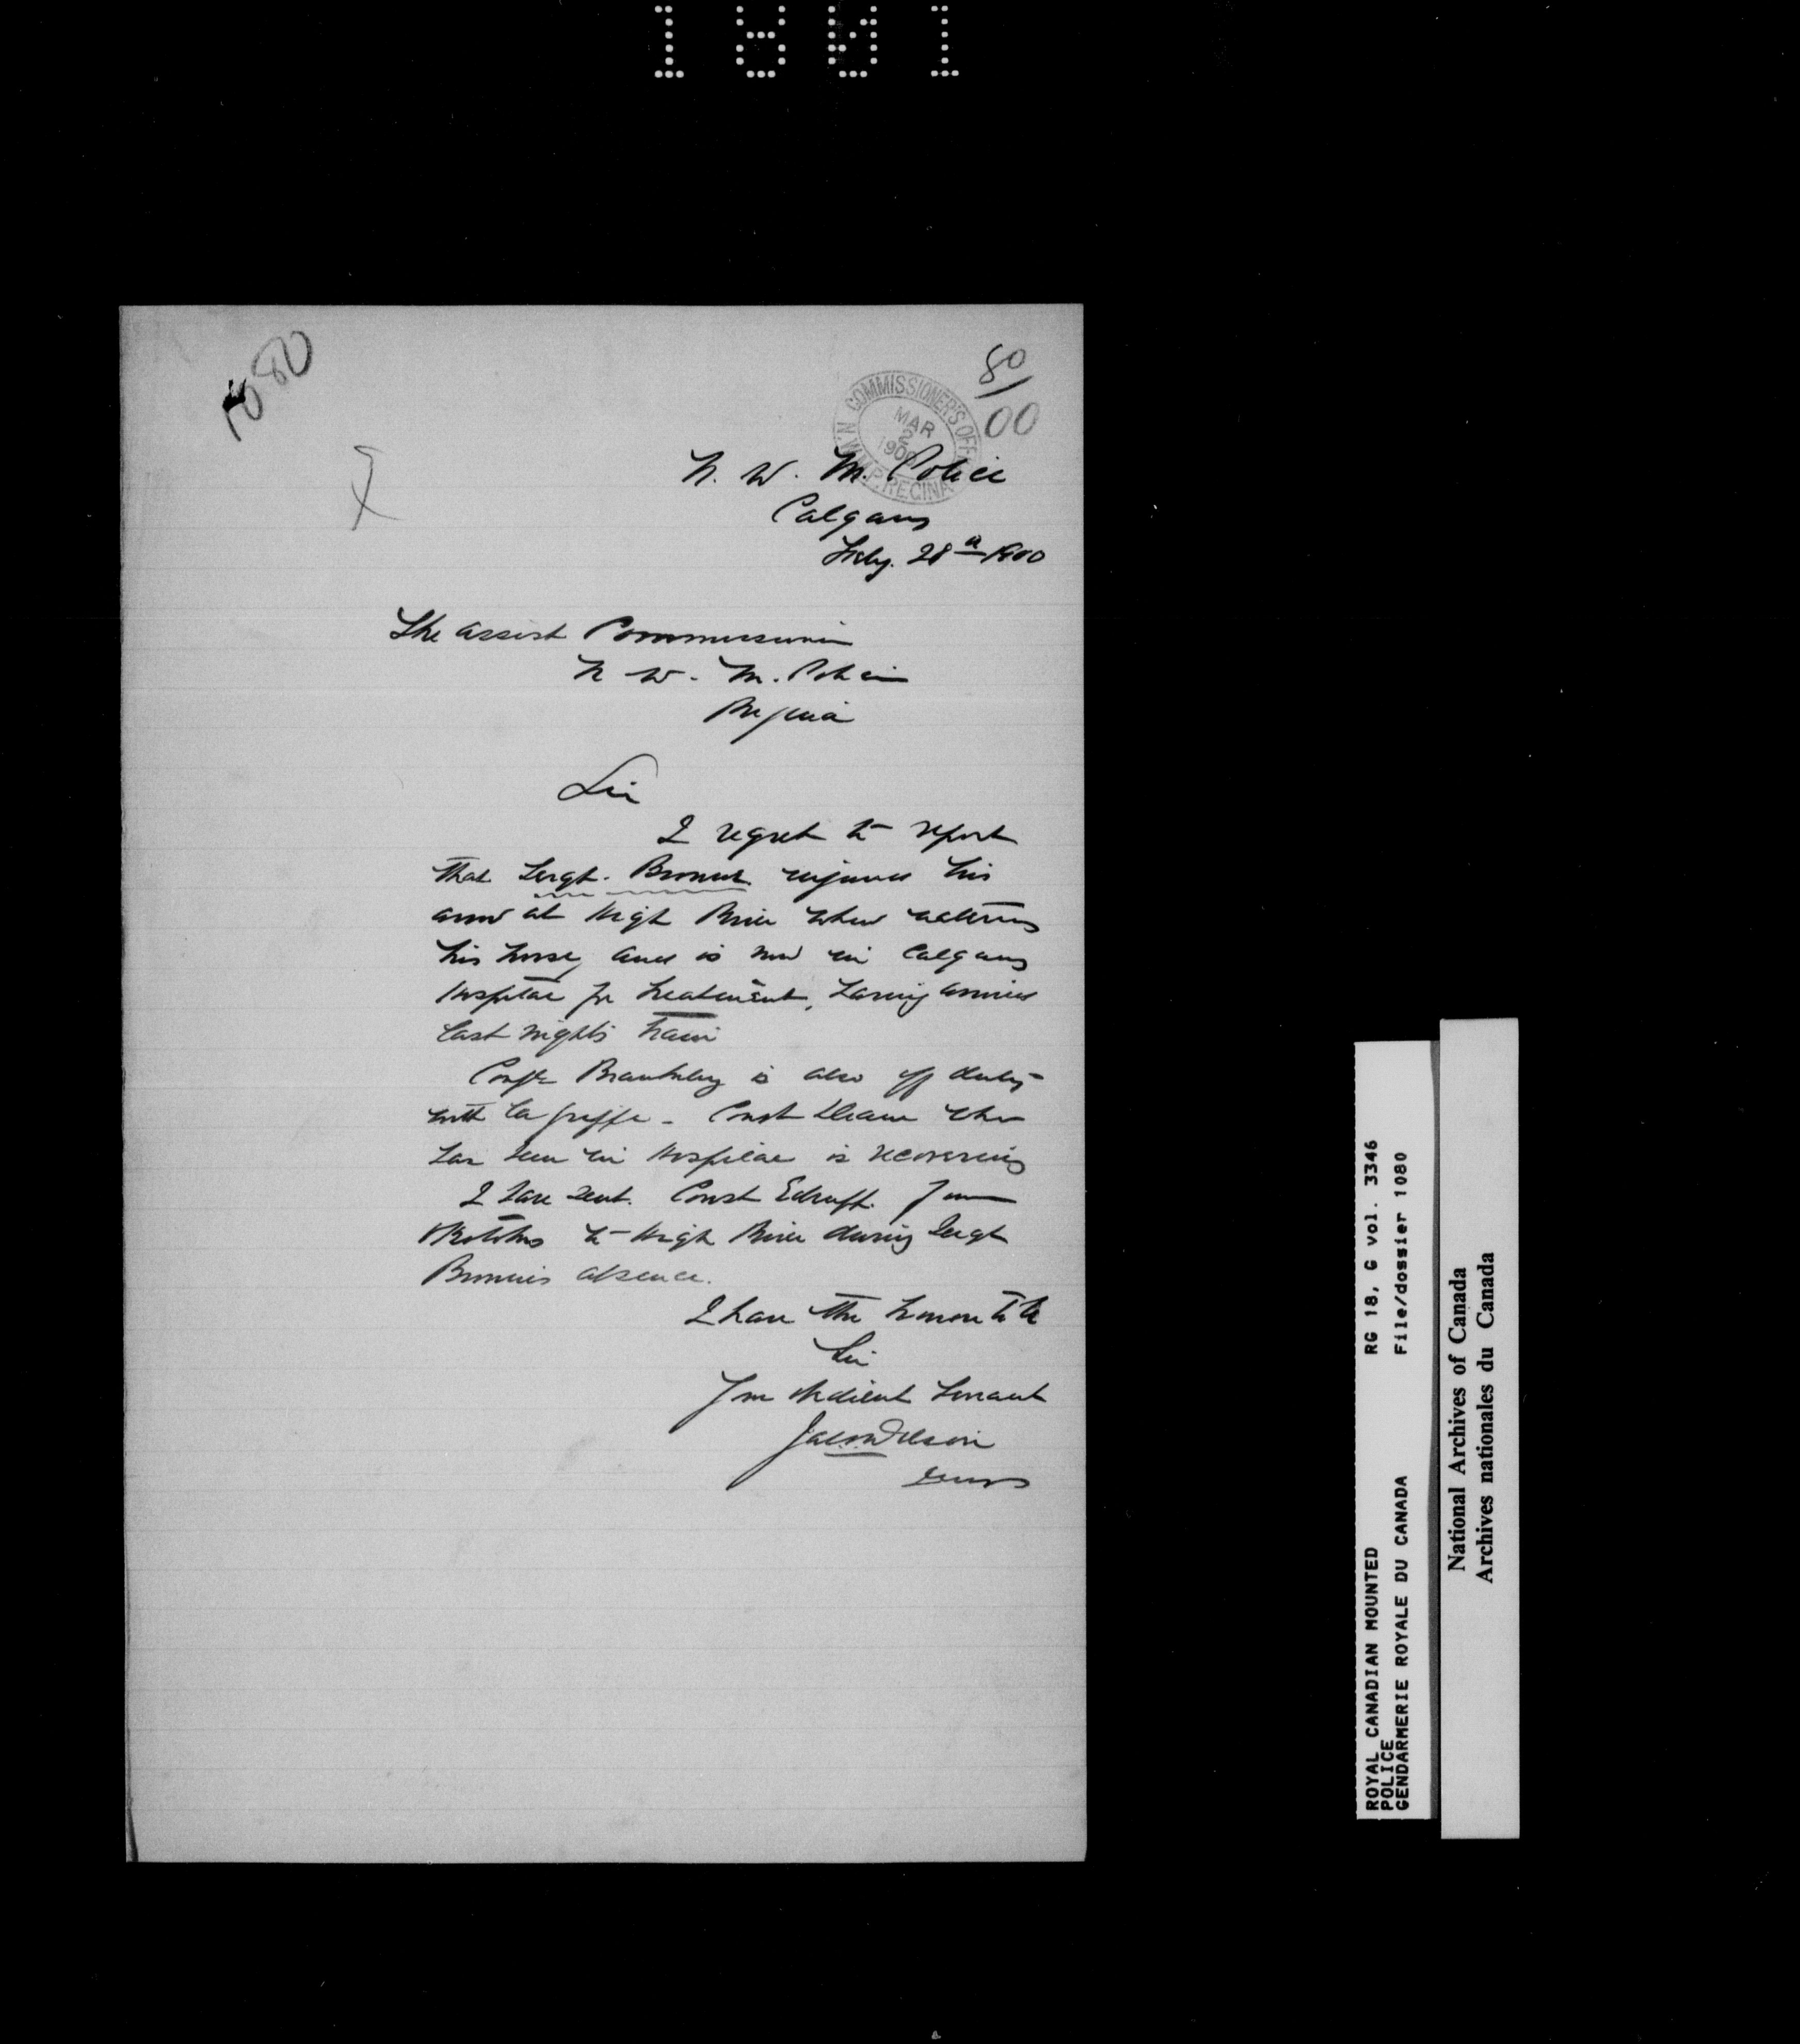 1801
1080
80/00
COMMISSIONER'S OFFICE
MAR
2
1900
N.W.M.P. REGINA
N. W. M. Police
Calgary
Feby. 28th 1900
The Assist Commissioner
N W. M. Police
Regina
Sir
I regret to report
that Sergt. Brymner injured his
arm at High River when watering
his horse, and is now in Calgary
Hospital for treatment, having arrived
last nights train
Corpl Brankley is also off duty
with la grippe - Const Deane who
has been in Hospital is recovering
I have sent Const from
Okotoks to High River during Sergt
absence.
I have the honour to be
Sir
Your obedient Servant
Wilson
RG 18, G vol. 3346
File/dossier 1080
ROYAL CANADIAN MOUNTED
POLICE
GENDARMERIE ROYALE DU CANADA
National Archives of Canada
Archives nationales du Canada